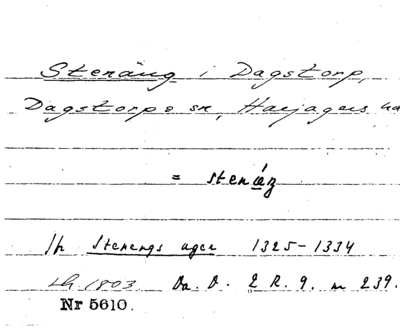 Stenäng i Dagstorp,
Dagstorps sn, Harjagers hd
= stenǽŋ
Stenengs ager 1325-1334
1803. Da. D. 2 R. 9. n 239.
Nr 5610.